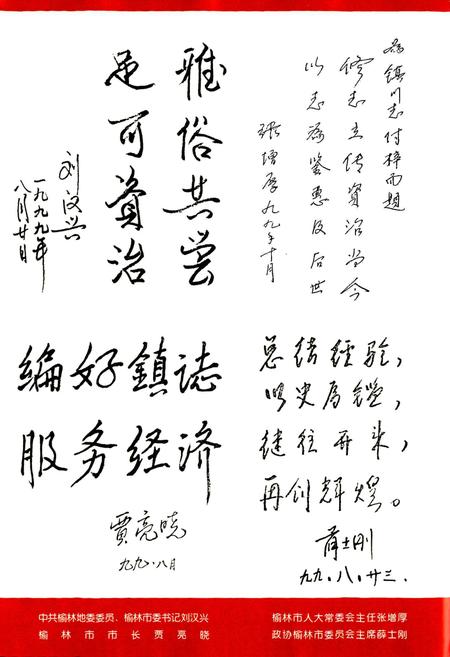 为镇川志付梓而题
修志立传资治当今
以志为鉴惠及后世
张增厚九九年十月
雅俗共尝
足可资治
刘汉兴
一九九九年
八月廿日
编好鎮誌
服务经济
贾亮晓
九九·八月
总结经验，
以史为鑑，
继往开来，
再创辉煌。
薛士刚
九九.八.廿三.
中共榆林地委委员、榆林市委书记刘汉兴
榆林市市长贾亮晓
榆林市人大常委会主任张增厚
政协榆林市委员会主席薛士刚